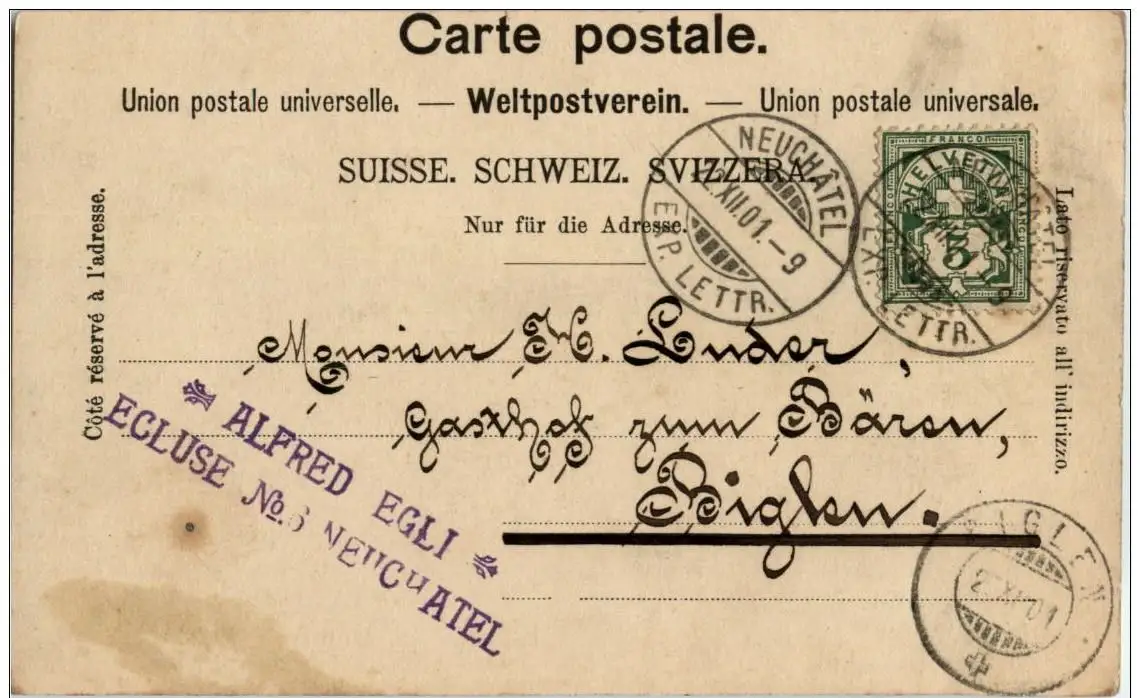 Carte postale.
Union postale universelle. — Weltpostverein. — Union postale universale.
SUISSE. SCHWEIZ. SVIZZERA.
Nur für die Adresse.
Côté réservé à l'adresse.
Lato riservato all' indirizzo.
NEUCHÂTEL
12.XII.01.-9
EXP. LETTR.
FRANCO
HELVETIA
5
EXP. LETTR.
Monsieur H. Luder,
Gasthof zum Bären,
Biglen.
ALFRED EGLI
ECLUSE No. 6 NEUCHATEL
BIGLEN
XII.01